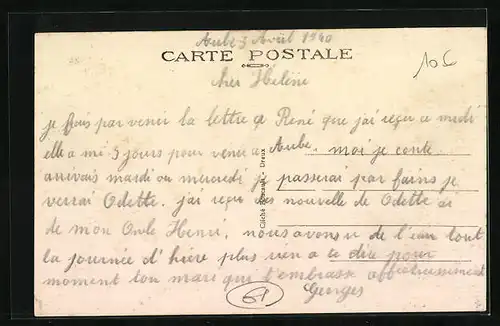 Aube 3 Avril 1940
CARTE POSTALE
10€
cher Hélène
je fais parvenir la lettre a René que j'ai reçu ce midi
elle a mi 3 jours pour venir a Aube, moi je conte
arrivais mardi ou mercredi je passerai par fains je
verrai Odette. j'ai reçu des nouvelle de Odette ai
de mon Oncle Henri, nous avons u de l'eau tout
la journée d'hière plus rien a te dire pour
moment ton mari qui t'embrasse affectueusement
Georges
61
Cliché - Dreux